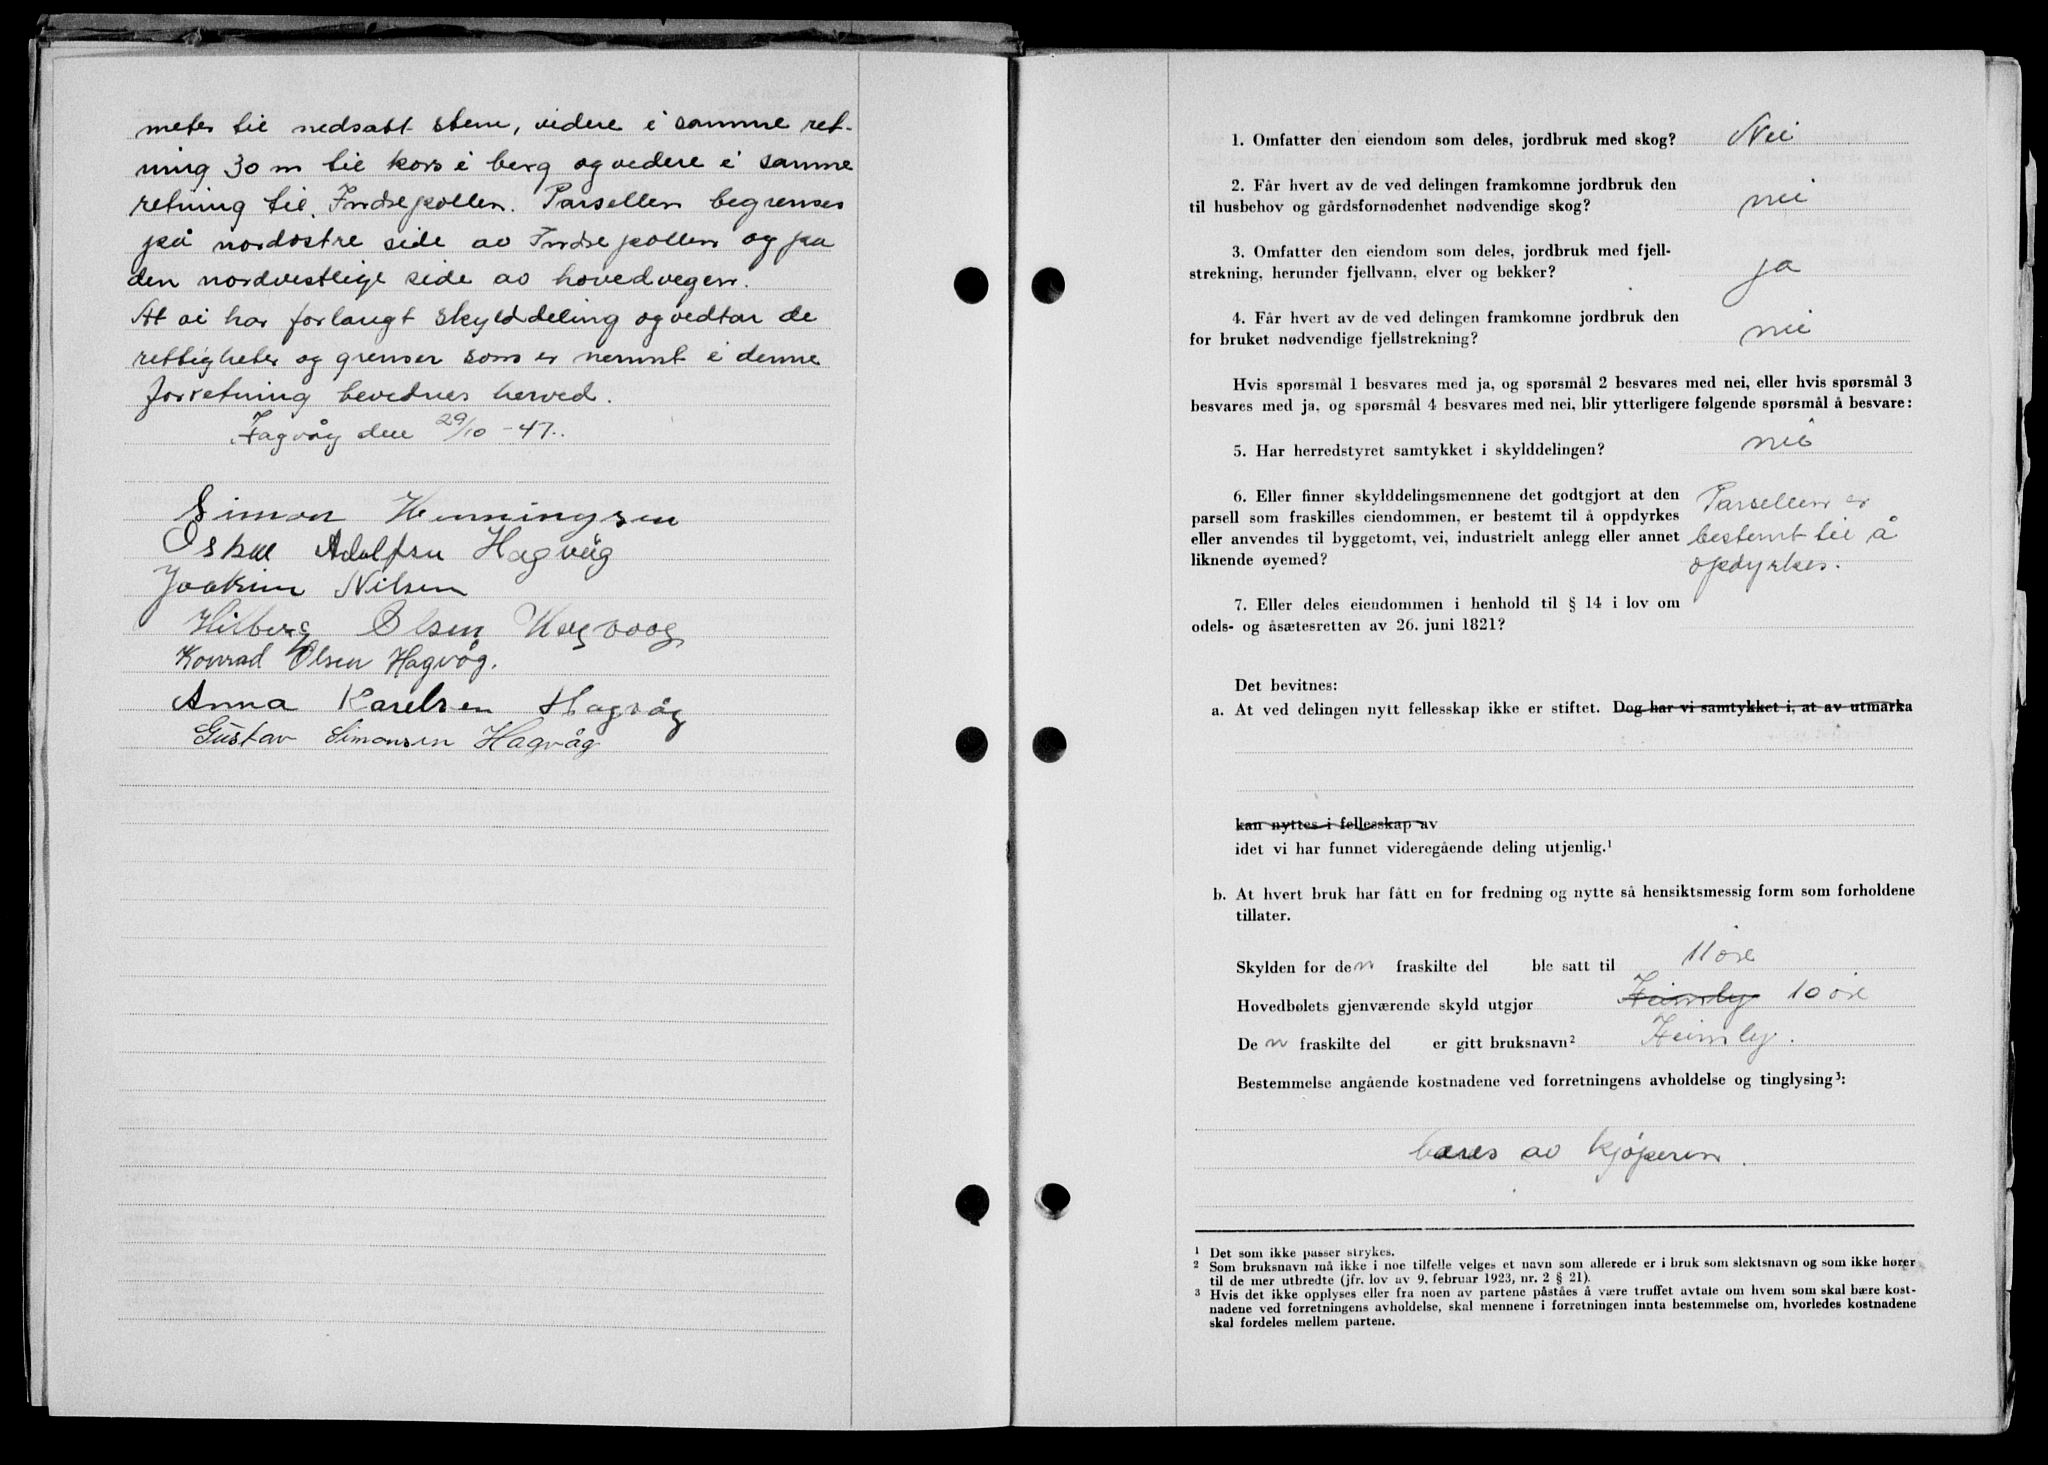 meter til nedsatt sten, videre i samme ret-
ning 30 m til kors i berg og videre i samme
retning til Indrepollen. Parsellen begrenses
på nordøstre side av Indrepollen og på
den nordvestlige side av hovedvegen.
At vi har forlangt skylddeling og vedtar de
rettigheter og grenser som er nevnt i denne
forretning bevitnes herved.
Hagvåg den 29/10 -47.
Simon Henningsen
Oskar Adolfsen Hagvåg
Joakim Nilsen
Hilberg Olsen Hagvaag
Konrad Olsen Hagvåg.
Anna Karelsen Hagvåg
Gustav Simonsen Hagvåg
1. Omfatter den eiendom som deles, jordbruk med skog? Nei
2. Får hvert av de ved delingen framkomne jordbruk den
til husbehov og gårdsfornødenhet nødvendige skog? nei
3. Omfatter den eiendom som deles, jordbruk med fjell-
strekning, herunder fjellvann, elver og bekker? ja
4. Får hvert av de ved delingen framkomne jordbruk den
for bruket nødvendige fjellstrekning? nei
Hvis spørsmål 1 besvares med ja, og spørsmål 2 besvares med nei, eller hvis spørsmål 3
besvares med ja, og spørsmål 4 besvares med nei, blir ytterligere følgende spørsmål å besvare:
5. Har herredstyret samtykket i skylddelingen? nei
6. Eller finner skylddelingsmennene det godtgjort at den
parsell som fraskilles eiendommen, er bestemt til å oppdyrkes
eller anvendes til byggetomt, vei, industrielt anlegg eller annet
liknende øyemed?
Parsellen er
bestemt til å
opdyrkes.
7. Eller deles eiendommen i henhold til § 14 i lov om
odels- og åsætesretten av 26. juni 1821?
Det bevitnes:
a. At ved delingen nytt fellesskap ikke er stiftet. Dog har vi samtykket i, at av utmarka
kan nyttes i fellesskap av
idet vi har funnet videregående deling utjenlig.¹
b. At hvert bruk har fått en for fredning og nytte så hensiktsmessig form som forholdene
tillater.
Skylden for den fraskilte del ble satt til 11 øre
Hovedbølets gjenværende skyld utgjør Heimly 10 øre
Den fraskilte del er gitt bruksnavn² Heimly.
Bestemmelse angående kostnadene ved forretningens avholdelse og tinglysing³:
bæres av kjøperen.
¹ Det som ikke passer strykes.
² Som bruksnavn må ikke i noe tilfelle velges et navn som allerede er i bruk som slektsnavn og som ikke hører
til de mer utbredte (jfr. lov av 9. februar 1923, nr. 2 § 21).
³ Hvis det ikke opplyses eller fra noen av partene påståes å være truffet avtale om hvem som skal bære kost-
nadene ved forretningens avholdelse, skal mennene i forretningen innta bestemmelse om, hvorledes kostnadene
skal fordeles mellem partene.